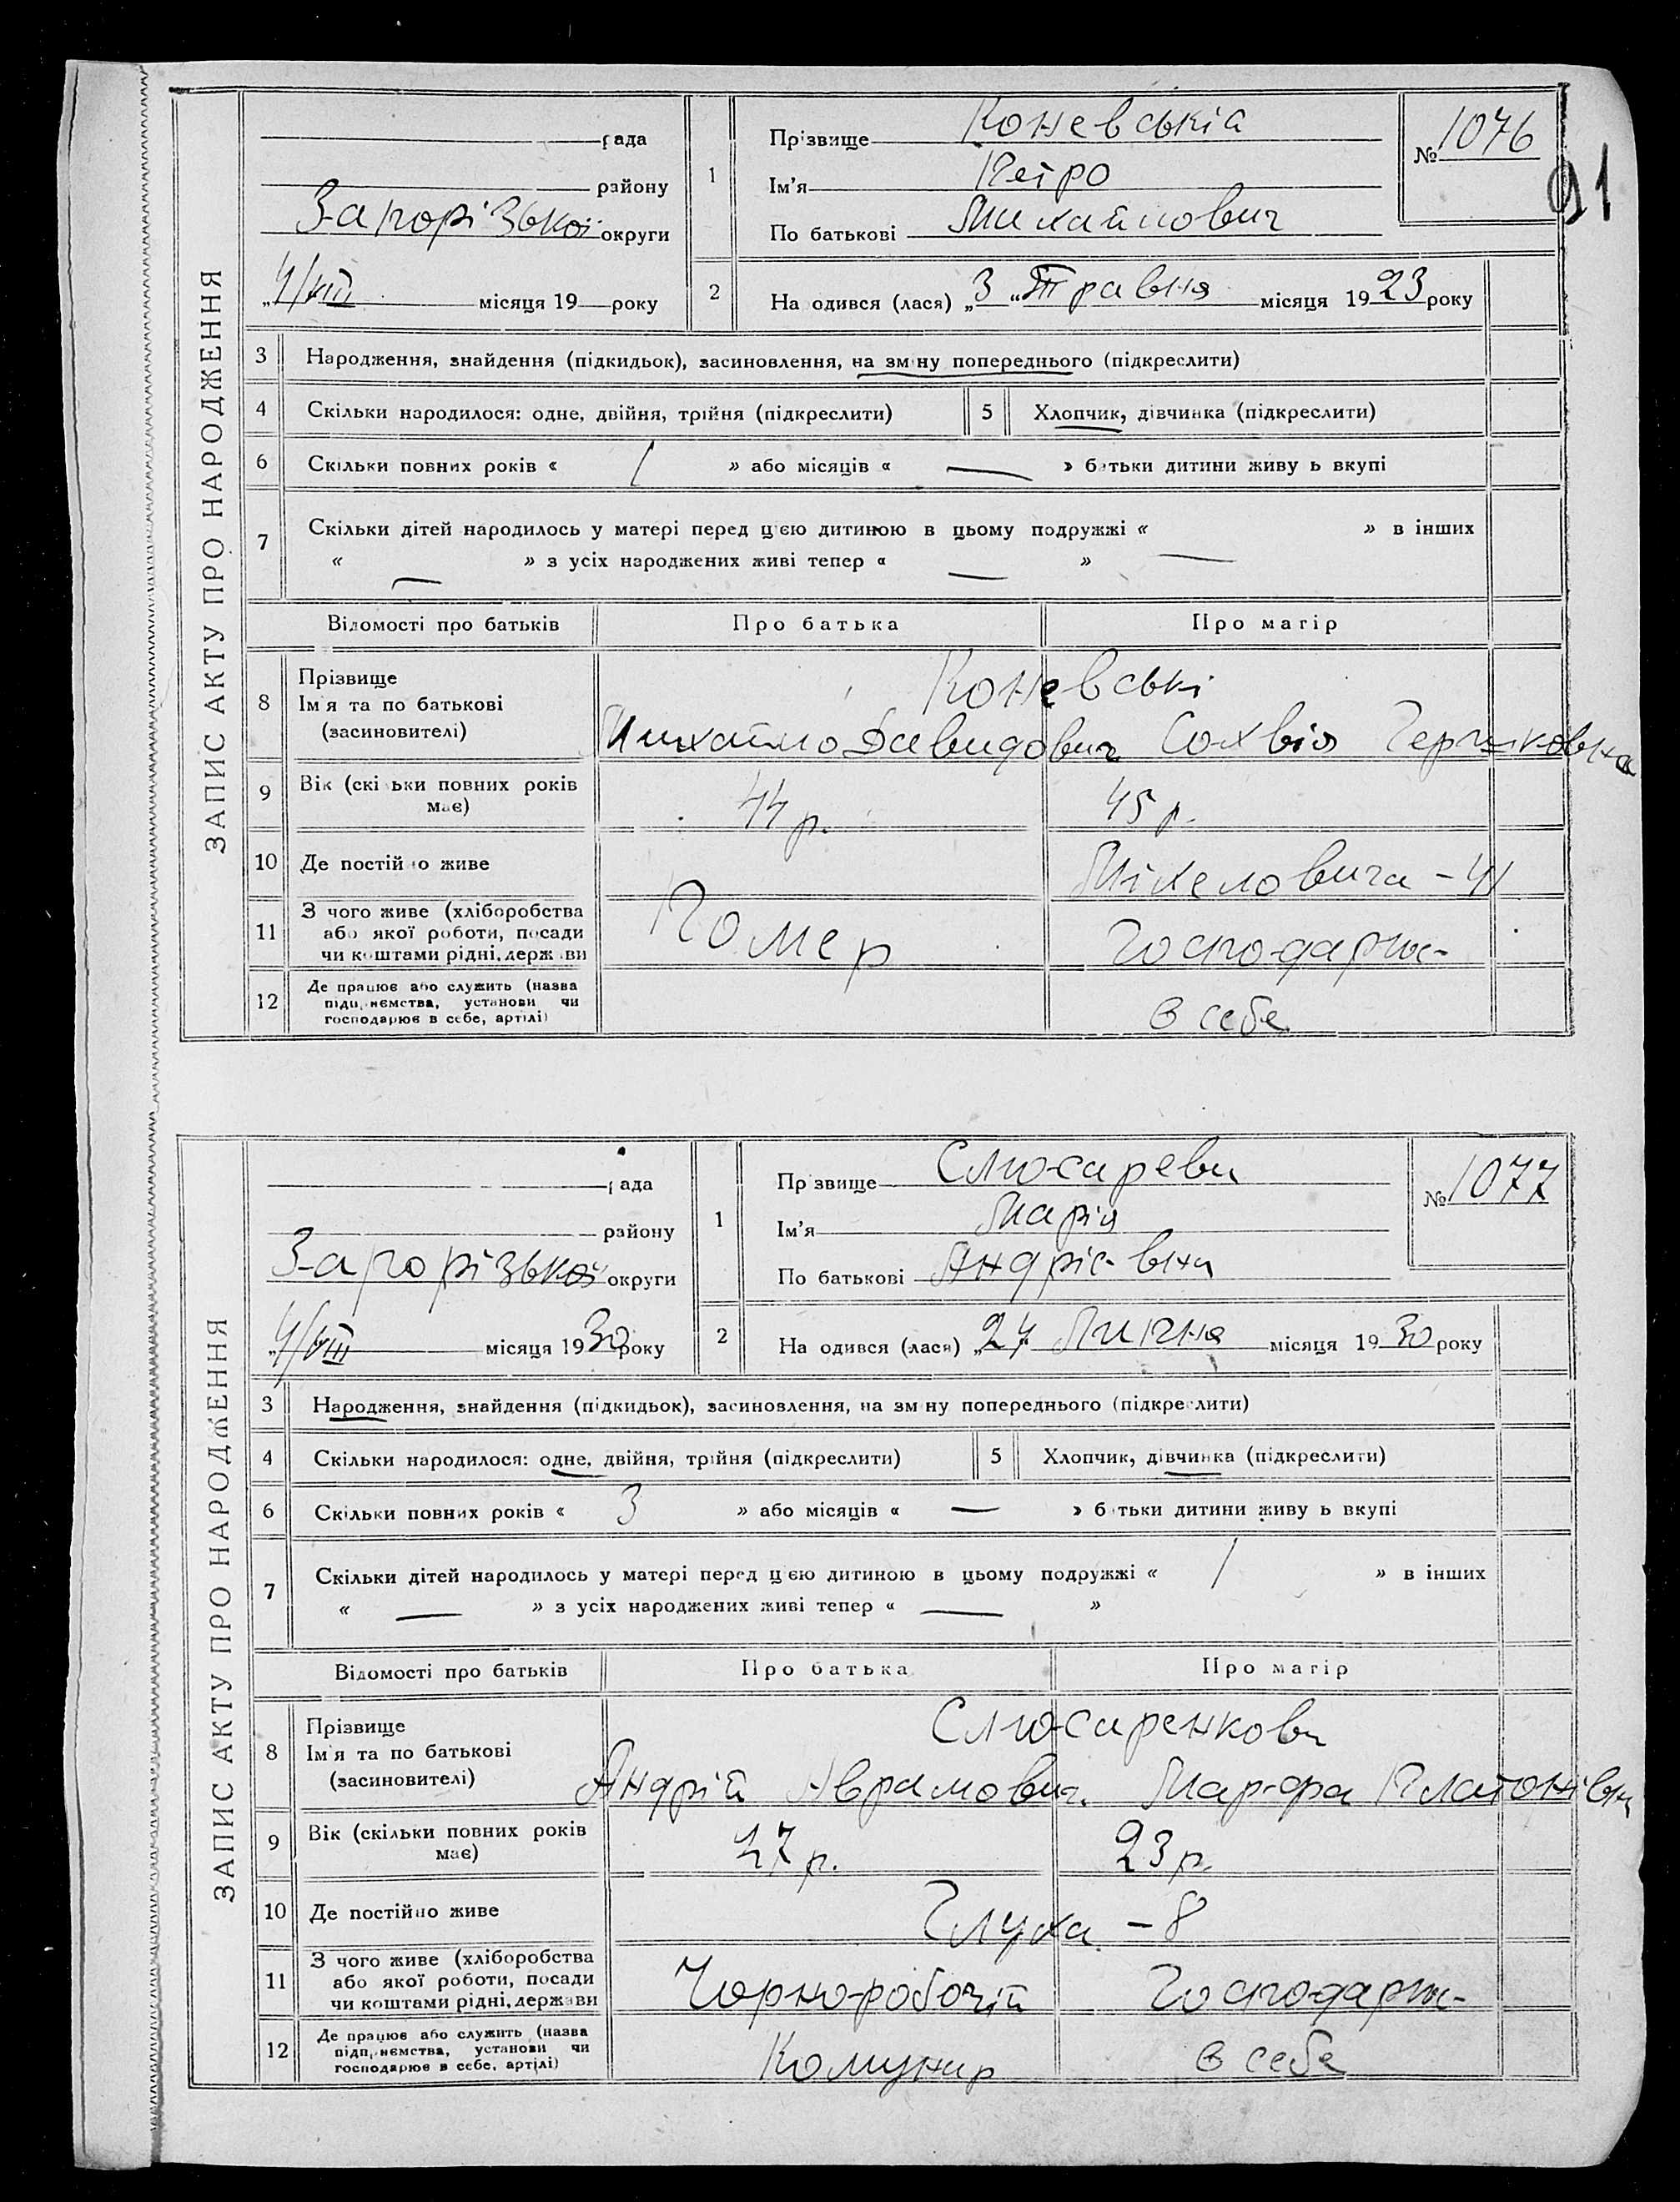 91
ЗАПИС АКТУ ПРО НАРОДЖЕННЯ
рада
району
Запорізької округи
„4/VIII місяця 19 року
1
Прізвище Коневській
Ім'я Петро
По батькові Михайлович
№ 1076
2
На одився (лася) „3„ Травня місяця 1923 року
3 Народження, знайдення (підкидьок), засиновлення, на зміну попереднього (підкреслити)
4 Скільки народилося: одне, двійня, трійня (підкреслити) 5 Хлопчик, дівчинка (підкреслити)
6 Скільки повних років « 1 » або місяців « — » батьки дитини живу ь вкупі
7 Скільки дітей народилось у матері перед цією дитиною в цьому подружжі « — » в інших
« — » з усіх народжених живі тепер « — »
Відомості про батьків Про батька Про матір
8 Прізвище
Ім'я та по батькові
(засиновителі)
Коневські
Михайло Давидович Сохвія
9 Вік (скі ьки повних років
має)
44 р. 45 р.
10 Де постійно живе
11 З чого живе (хліборобства
або якої роботи, посади
чи коштами рідні, держави
Помер Господарює
12 Де працює або служить (назва
підприємства, установи чи
господарює в себе, артілі)
в себе
ЗАПИС АКТУ ПРО НАРОДЖЕННЯ
рада
району
Запорізької округи
„4/VIII місяця 1930 року
1
Прізвище Слюсарева
Ім'я Марія
По батькові Андріевна
№ 1077
2
На одився (лася) „24„ Липня місяця 1930 року
3 Народження, знайдення (підкидьок), засиновлення, на зміну попереднього (підкреслити)
4 Скільки народилося: одне, двійня, трійня (підкреслити) 5 Хлопчик, дівчинка (підкреслити)
6 Скільки повних років « 3 » або місяців « — » батьки дитини живу ь вкупі
7 Скільки дітей народилось у матері перед цією дитиною в цьому подружжі « 1 » в інших
« — » з усіх народжених живі тепер « — »
Відомості про батьків Про батька Про матір
8 Прізвище
Ім'я та по батькові
(засиновителі)
Слюсаренкови
Андрій Аврамович Марфа Платонівна
9 Вік (скільки повних років
має)
27 р. 23 р.
10 Де постійно живе
Глуха – 8
11 З чого живе (хліборобства
або якої роботи, посади
чи коштами рідні, держави
Чорноробочій Господарює
12 Де працює або служить (назва
підприємства, установи чи
господарює в себе, артілі)
Комунар в себе